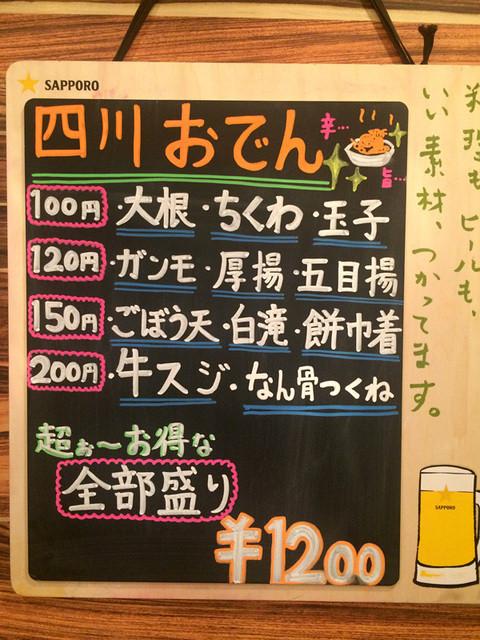 SAPPORO
四川おでん
辛…
旨…
100円 ・大根・ちくわ・玉子
120円 ・ガンモ・厚揚・五目揚
150円 ごぼう天・白滝・餅巾着
200円 ・牛スジ・なん骨つくね
超ぉ〜お得な
全部盛り
¥1200
料理も ビールも、
いい素材、つかってます。
SAPPORO